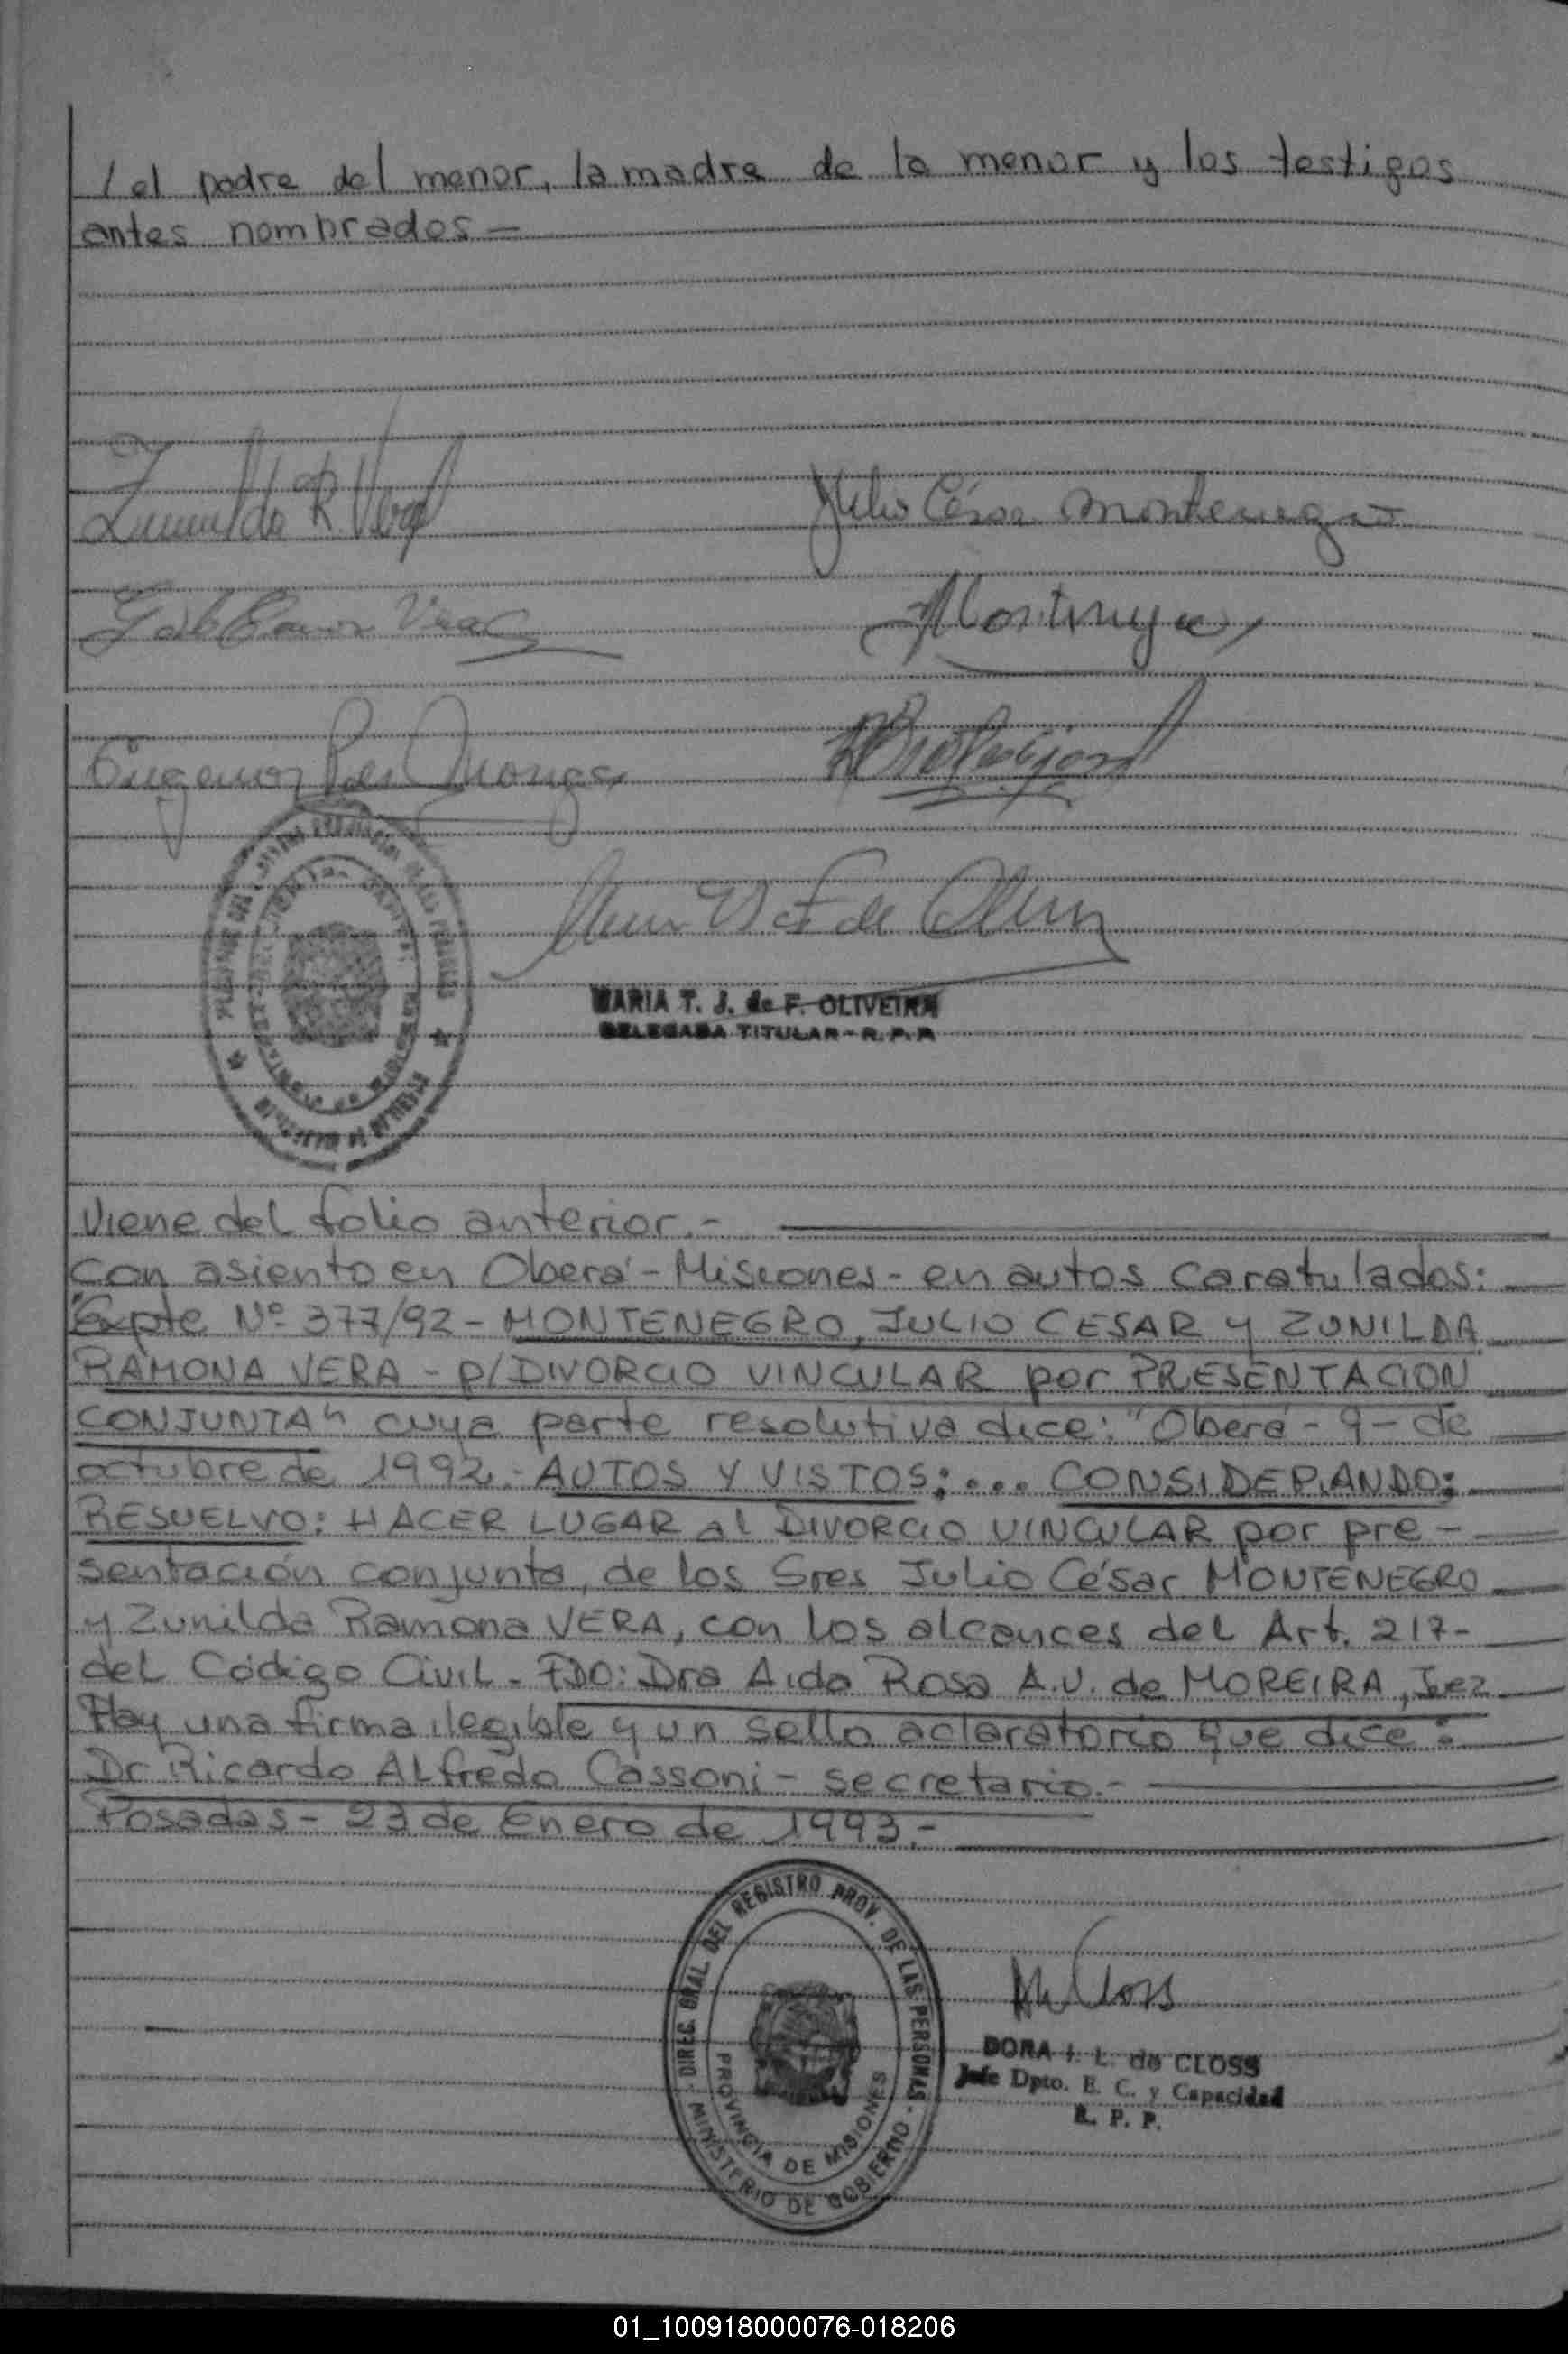 / el padre del menor, la madre de la menor y los testigos
antes nombrados —
Zunilda R. Vera
Julio César Montenegro
Vera
MARIA T. J. de F. OLIVEIRA
DELEGADA TITULAR - R.P.P.
Viene del folio anterior.-
Con asiento en Oberá - Misiones - en autos caratulados:
"Expte Nº 377/92 - MONTENEGRO, JULIO CESAR y ZUNILDA
RAMONA VERA - p/DIVORCIO VINCULAR por PRESENTACION
CONJUNTA" cuya parte resolutiva dice: "Oberá - 9 - de
octubre de 1992.- AUTOS Y VISTOS; ... CONSIDERANDO;
RESUELVO: HACER LUGAR al DIVORCIO VINCULAR por pre-
sentación conjunta, de los Sres Julio César MONTENEGRO
y Zunilda Ramona VERA, con los alcances del Art. 217-
del Código Civil - FDO: Dra Aida Rosa A.V. de MOREIRA, Juez
Hay una firma ilegible y un sello aclaratorio que dice:
Dr Ricardo ALfredo Cassoni - secretario.-
Posadas - 23 de Enero de 1993.-
DIREC. GRAL DEL REGISTRO PROV. DE LAS PERSONAS -
MINISTERIO DE GOBIERNO -
PROVINCIA DE MISIONES
DORA I. L. de CLOSS
Jefe Dpto. E. C. y Capacidad
R. P. P.
01_100918000076-018206